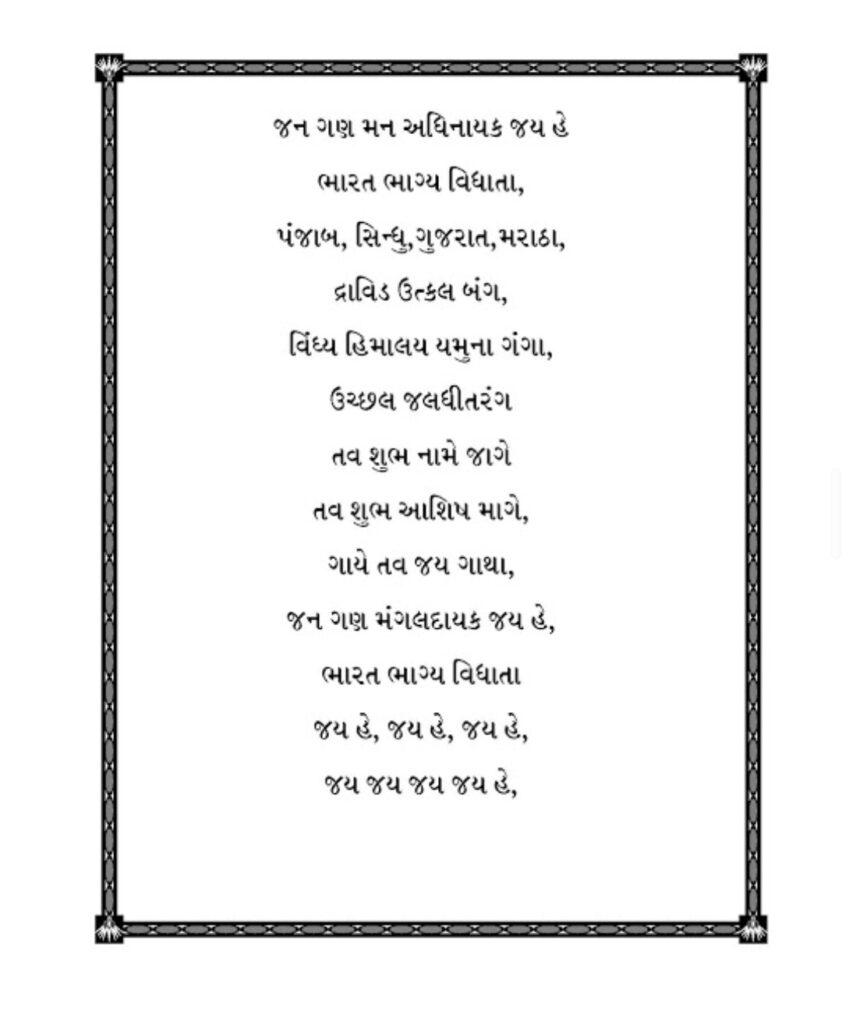 જન ગણ મન અધિનાયક જય હે
ભારત ભાગ્ય વિધાતા,
પંજાબ, સિન્ધુ,ગુજરાત,મરાઠા,
દ્રાવિડ ઉત્કલ બંગ,
વિંધ્ય હિમાલય યમુના ગંગા,
ઉચ્છલ જલધીતરંગ
તવ શુભ નામે જાગે
તવ શુભ આશિષ માગે,
ગાયે તવ જય ગાથા,
જન ગણ મંગલદાયક જય હે,
ભારત ભાગ્ય વિધાતા
જય હે, જય હે, જય હે,
જય જય જય જય હે,